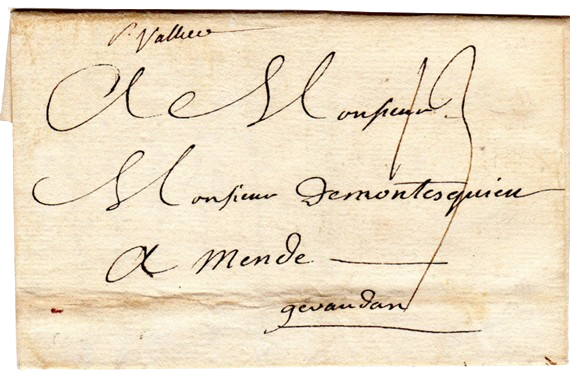 St Vallier
A Monsieur
13
Monsieur Demontesquieu
A Mende
gevaudan